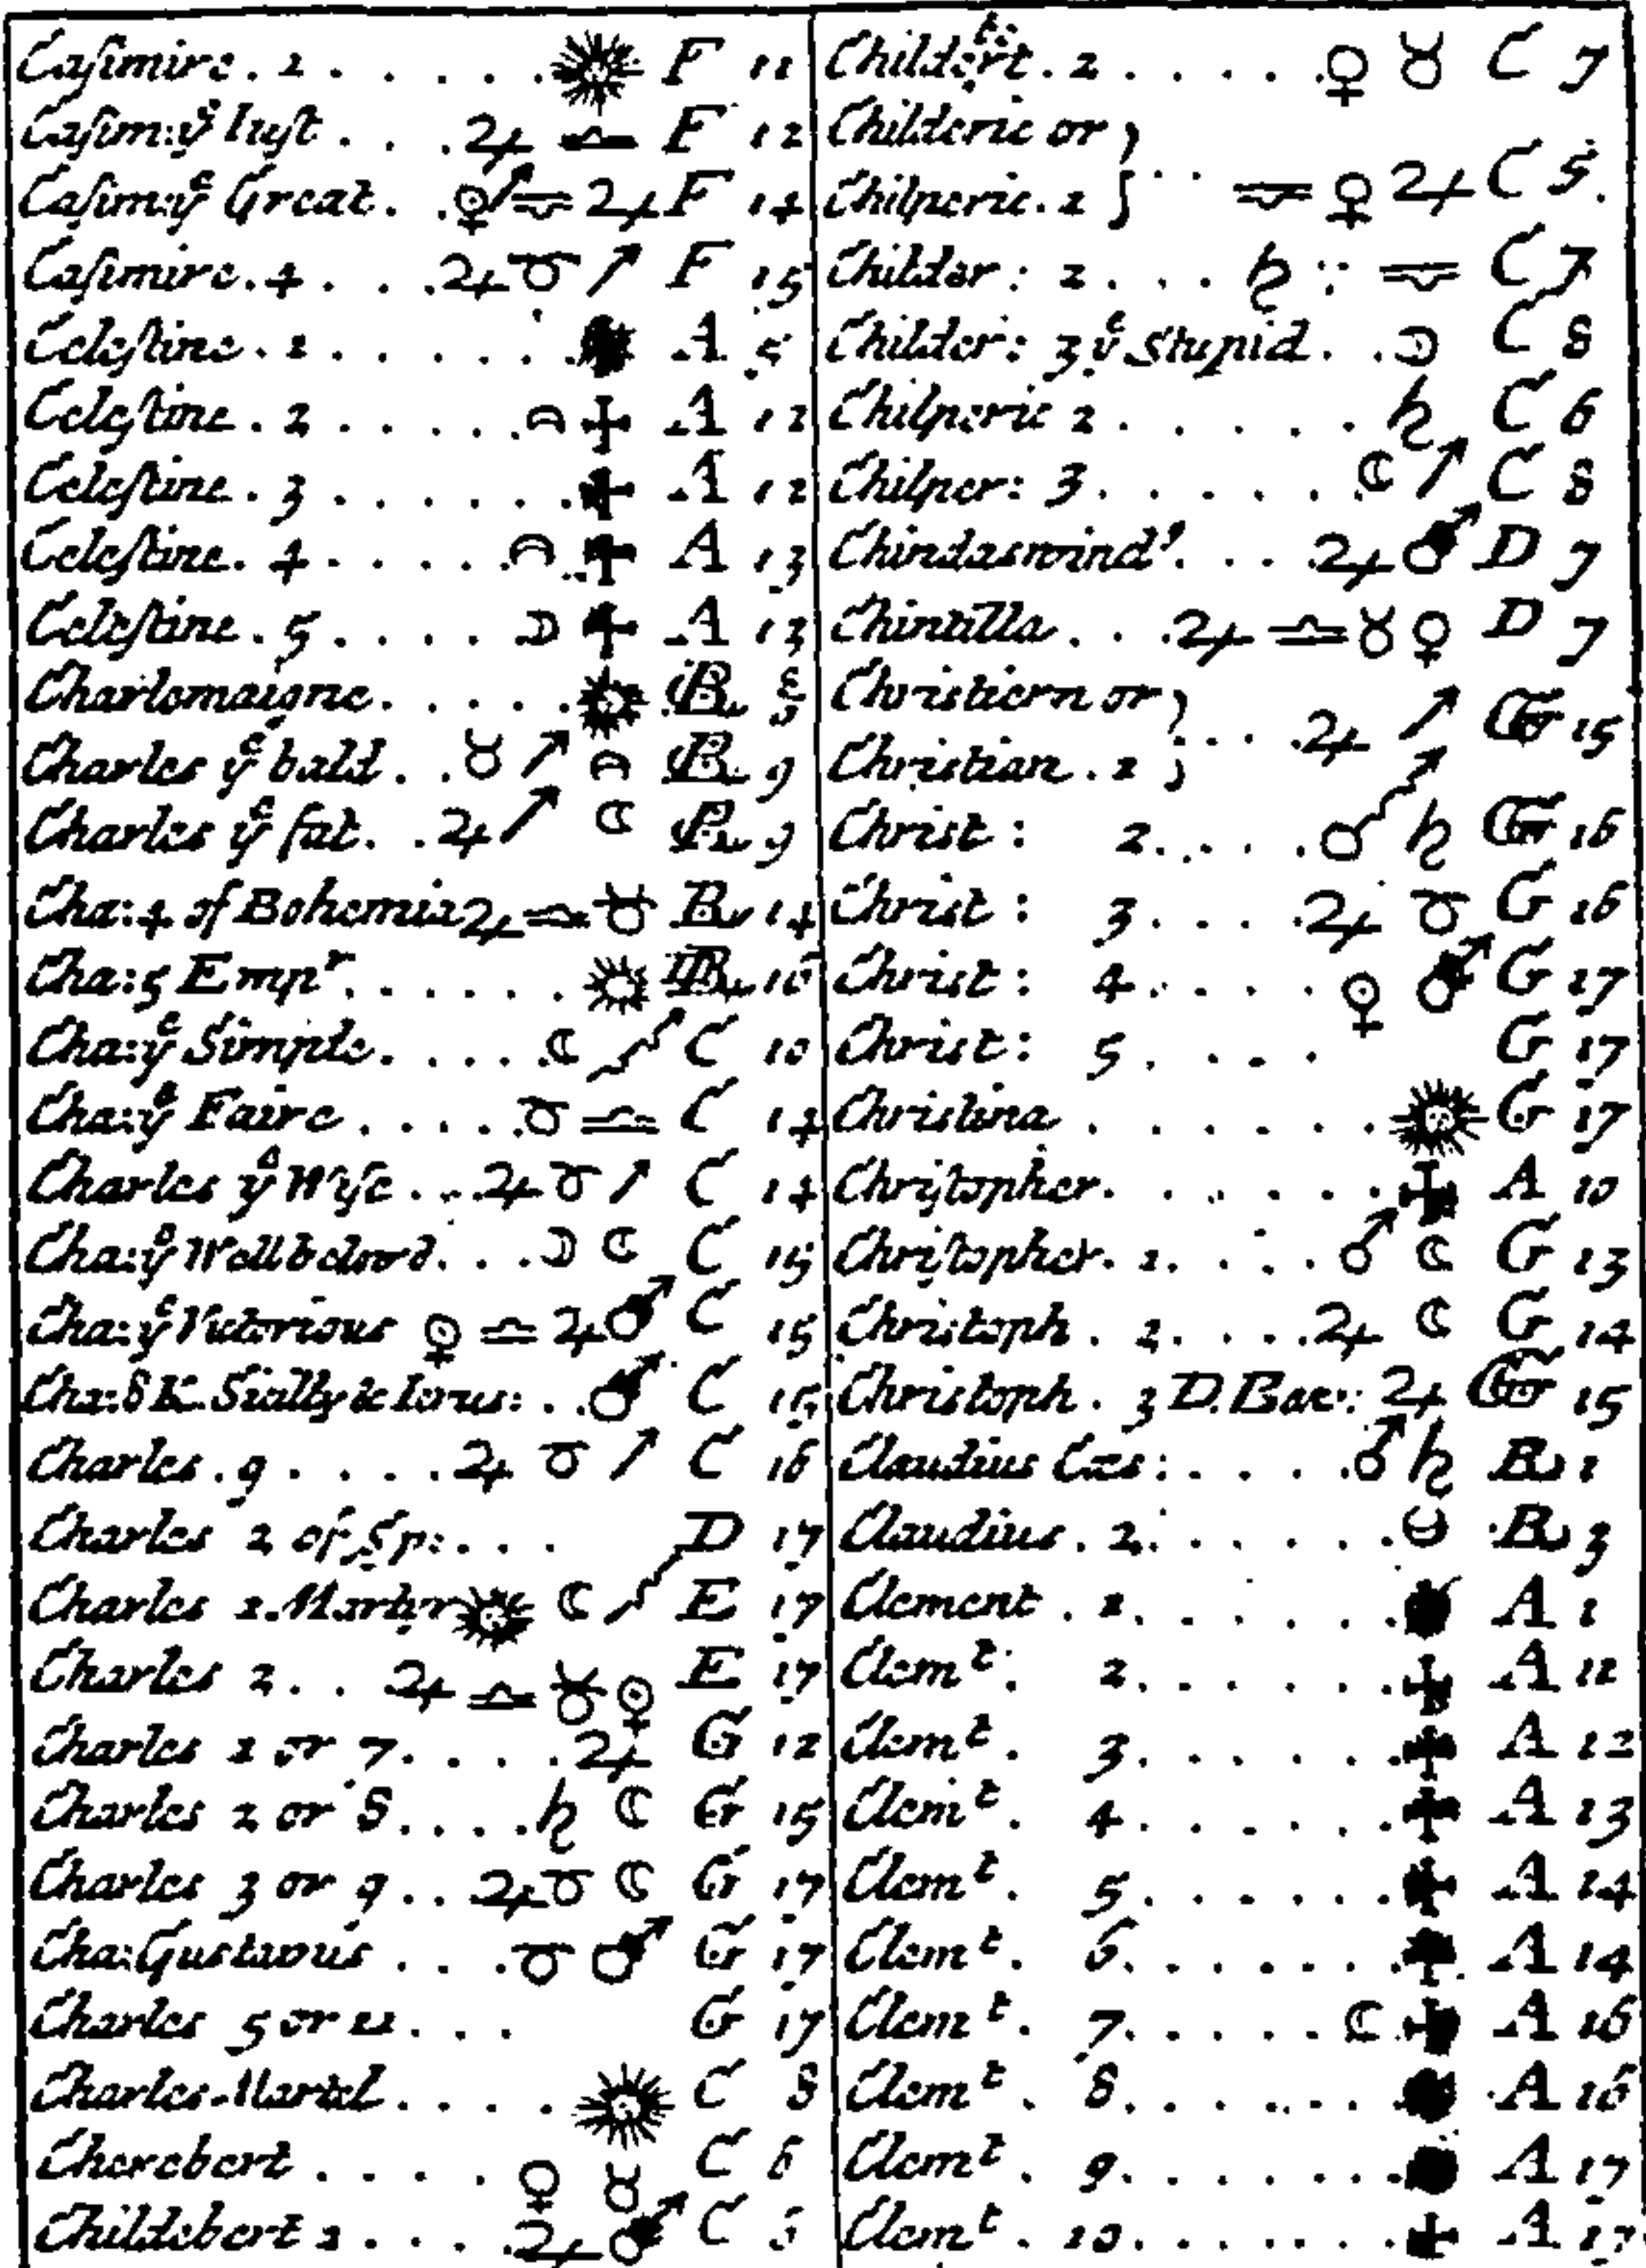 Casimire. 1 . . . . . ☉ F 11
Casim: yͤ Iust . . . ♃ ♎ F 12
Casim: yͤ Great . . ♀ ♎ ♃ F 14
Casimire. 4 . . . ♃ ♉ ↗ F 15
Celestine. 1 . . . . . . A 5
Celestine. 2 . . . . . ✠ A 12
Celestine. 3 . . . . . . ✠ A 12
Celestine. 4 . . . . . ✠ A 13
Celestine. 5 . . . . ☽ ✠ A 13
Charlemaigne . . . . . ☉ B 8
Charles yͤ bald . . ♉ ↗ B 9
Charles yͤ fat. . . ♃ ↗ ☾ B 9
Cha: 4 of Bohemia ♃ ♎ ♉ B 14
Cha: 5 Empʳ. . . . . . . ☉ B 16
Cha: yͤ Simple. . . . . ☾ C 10
Cha: yͤ Faire . . . . . ♉ ♎ C 14
Charles yͤ Wise . . . ♃ ♉ ↗ C 14
Cha: yͤ Wellbelovd. . . . ☽ ☾ C 15
Cha: yͤ Victorious ♀ ♎ ♃ ♂ C 15
Cha: 8 K. Sially & Ierus: . . ♂ C 15
Charles. 9 . . . . . ♃ ♉ ↗ C 16
Charles 2 of Sp: . . . D 17
Charles 1. Martyr ☉ ☾ E 17
Charles 2 . . . ♃ ♎ ♉ ♀ E 17
Charles 1 or 7. . . . . ♃ G 12
Charles 2 or 8. . . . . ♄ ☾ G 15
Charles 3 or 9 . . ♃ ♉ ☾ G 17
Cha: Gustavus . . . . ♉ ♂ G 17
Charles 5 or 11 . . . G 17
Charles-Martel . . . . . ☉ C 8
Cherebert . . . . ♀ ♉ C 6
Childebert 1 . . . . ♃ ♂ C 6
Childebᵗ. 2 . . . . . ♀ ♉ C 7
Childeric or }
Chilperic. 1 } . . ♒ ♀ ♃ C 5.
Childer: 2 . . . ♄ : ♒ C 7
Childer: 3 yͤ Stupid. . . ☽ C 8
Chilperic 2 . . . . . . ♄ C 6
Chilper: 3. . . . . . . ☾ ↗ C 8
Chindaswindˢ. . . . ♃ ♂ D 7
Chintilla . . . ♃ ♎ ♉ ♀ D 7
Christiern or }
Christian. 1 } . . . ♃ ↗ G 15
Christ: 2. . . . . ♂ ♄ G 16
Christ: 3. . . . ♃ ♉ G 16
Christ: 4. . . . . ♀ ♂ G 17
Christ: 5. . . . G 17
Christina . . . . . . . ☉ G 17
Christopher. . . . . . . ✠ A 10
Christopher. 1. . . . . ♂ ☾ G 13
Christoph. 2. . . . . ♃ ☾ G 14
Christoph. 3 D. Bav: ♃ G 15
Claudius Cæs: . . . . ♂ ♄ B 1
Claudius. 2. . . . . . . B 3
Clement. 1. . . . . . A 1
Clemᵗ. 2. . . . . . . ✠ A 11
Clemᵗ. 3. . . . . . . ✠ A 12
Clemᵗ. 4. . . . . . . ✠ A 13
Clemᵗ. 5. . . . . . . ✠ A 14
Clemᵗ. 6. . . . . . . ✠ A 14
Clemᵗ. 7. . . . . . ☾ ✠ A 16
Clemᵗ. 8. . . . . . . A 16
Clemᵗ. 9. . . . . . . . A 17
Clemᵗ. 10. . . . . . . ✠ A 17